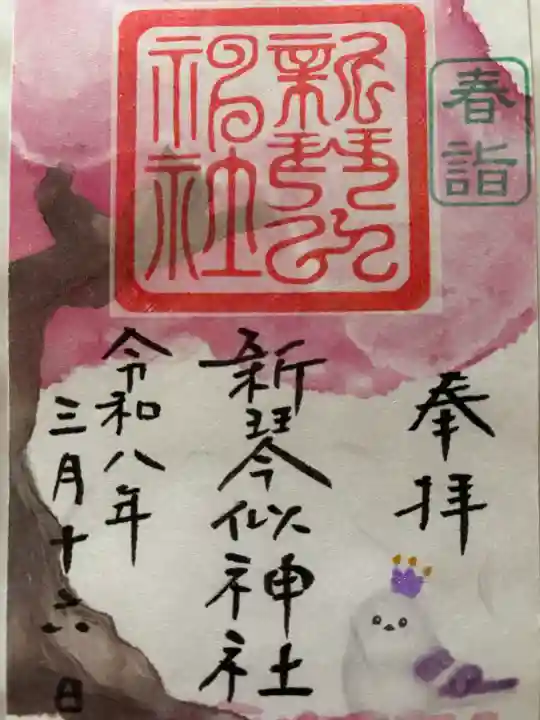 春詣
奉拝
新琴似神社
新琴似神社
令和八年
三月十六日